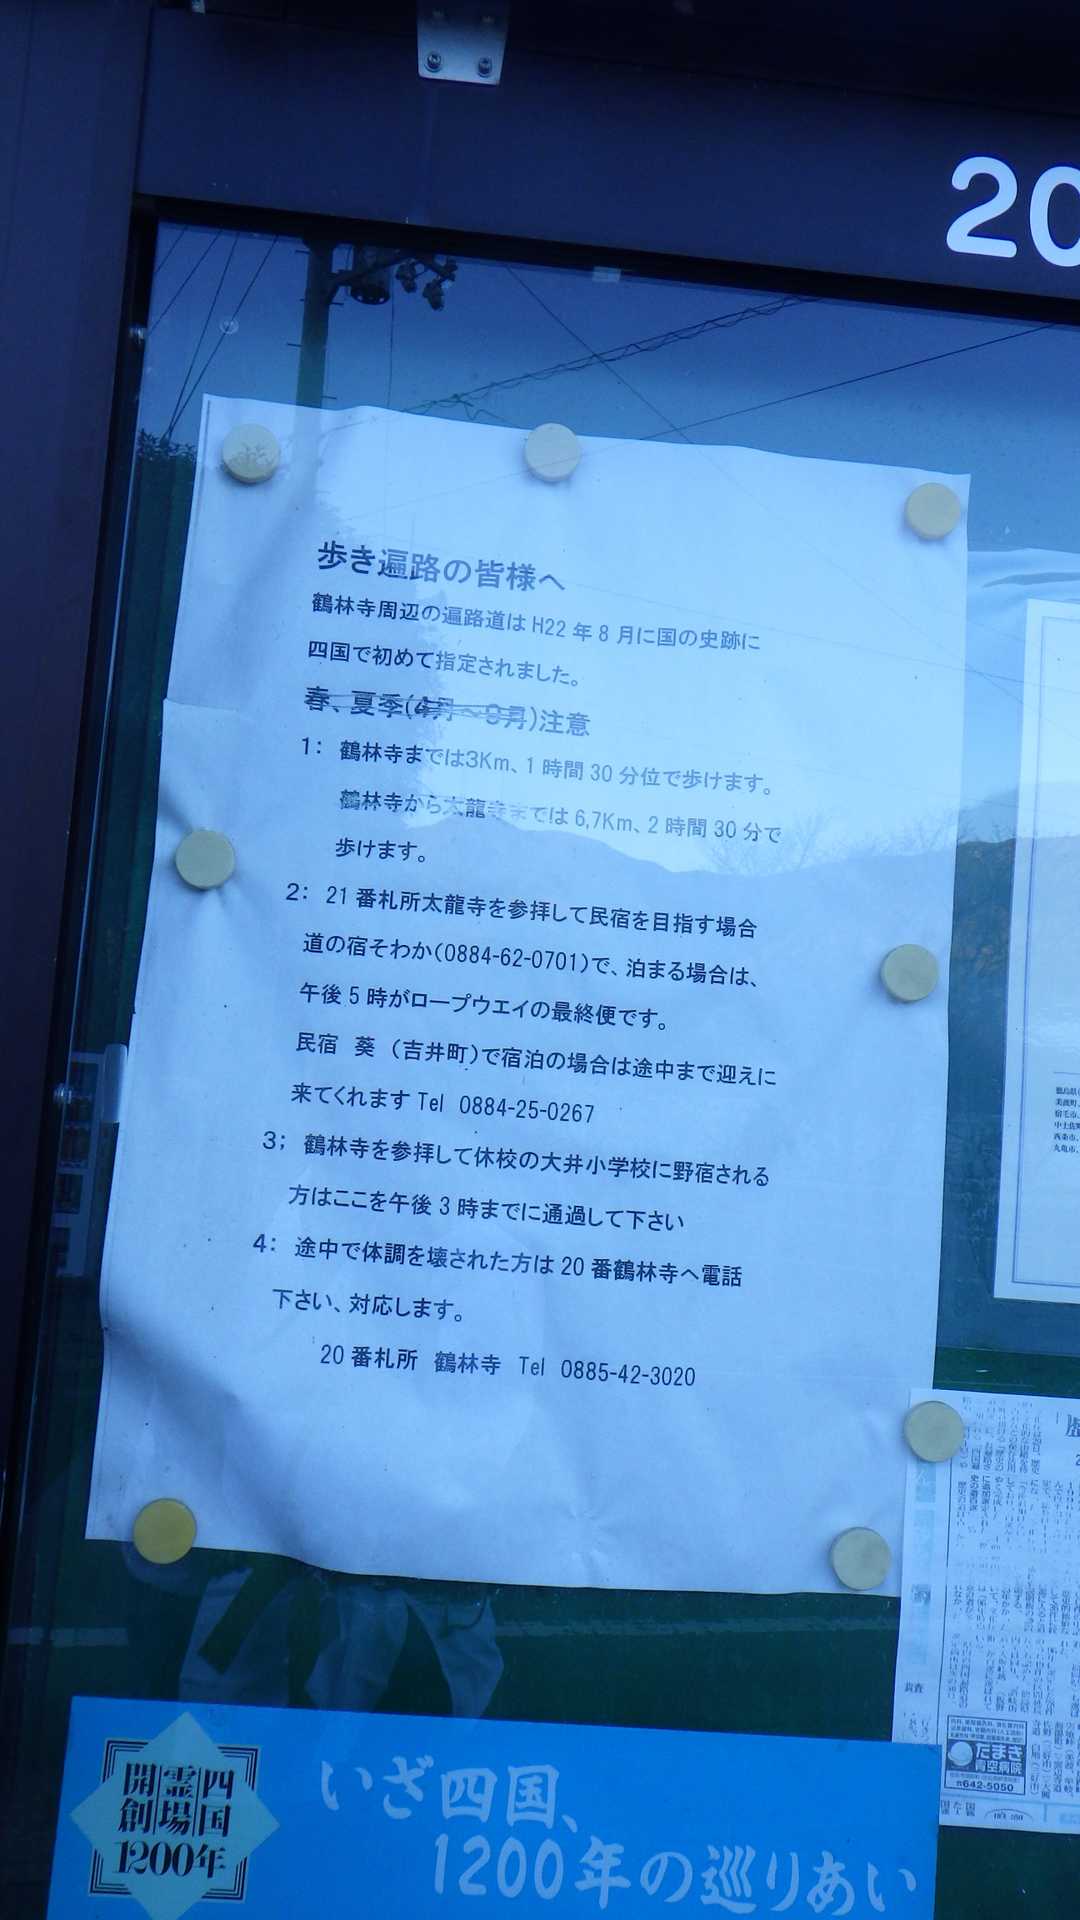 20
歩き遍路の皆様へ
鶴林寺周辺の遍路道は H22 年 8 月に国の史跡に
四国で初めて指定されました。
春、夏季(4月～9月)注意
1： 鶴林寺までは3Km、1 時間 30 分位で歩けます。
鶴林寺から太龍寺までは 6,7Km、2 時間 30 分で
歩けます。
2： 21 番札所太龍寺を参拝して民宿を目指す場合
道の宿そわか(0884-62-0701)で、泊まる場合は、
午後 5 時がロープウエイの最終便です。
民宿　葵　(吉井町)で宿泊の場合は途中まで迎えに
来てくれます Tel 0884-25-0267
3； 鶴林寺を参拝して休校の大井小学校に野宿される
方はここを午後 3 時までに通過して下さい
4： 途中で体調を壊された方は 20 番鶴林寺へ電話
下さい、対応します。
20 番札所　鶴林寺　Tel 0885-42-3020
徳島県
美波町、
宿毛市、
中土佐町
西条市、
丸亀市、
たまき
青空病院
☎642-5050
四国
霊場
開創
1200年
いざ四国、
1200年の巡りあい